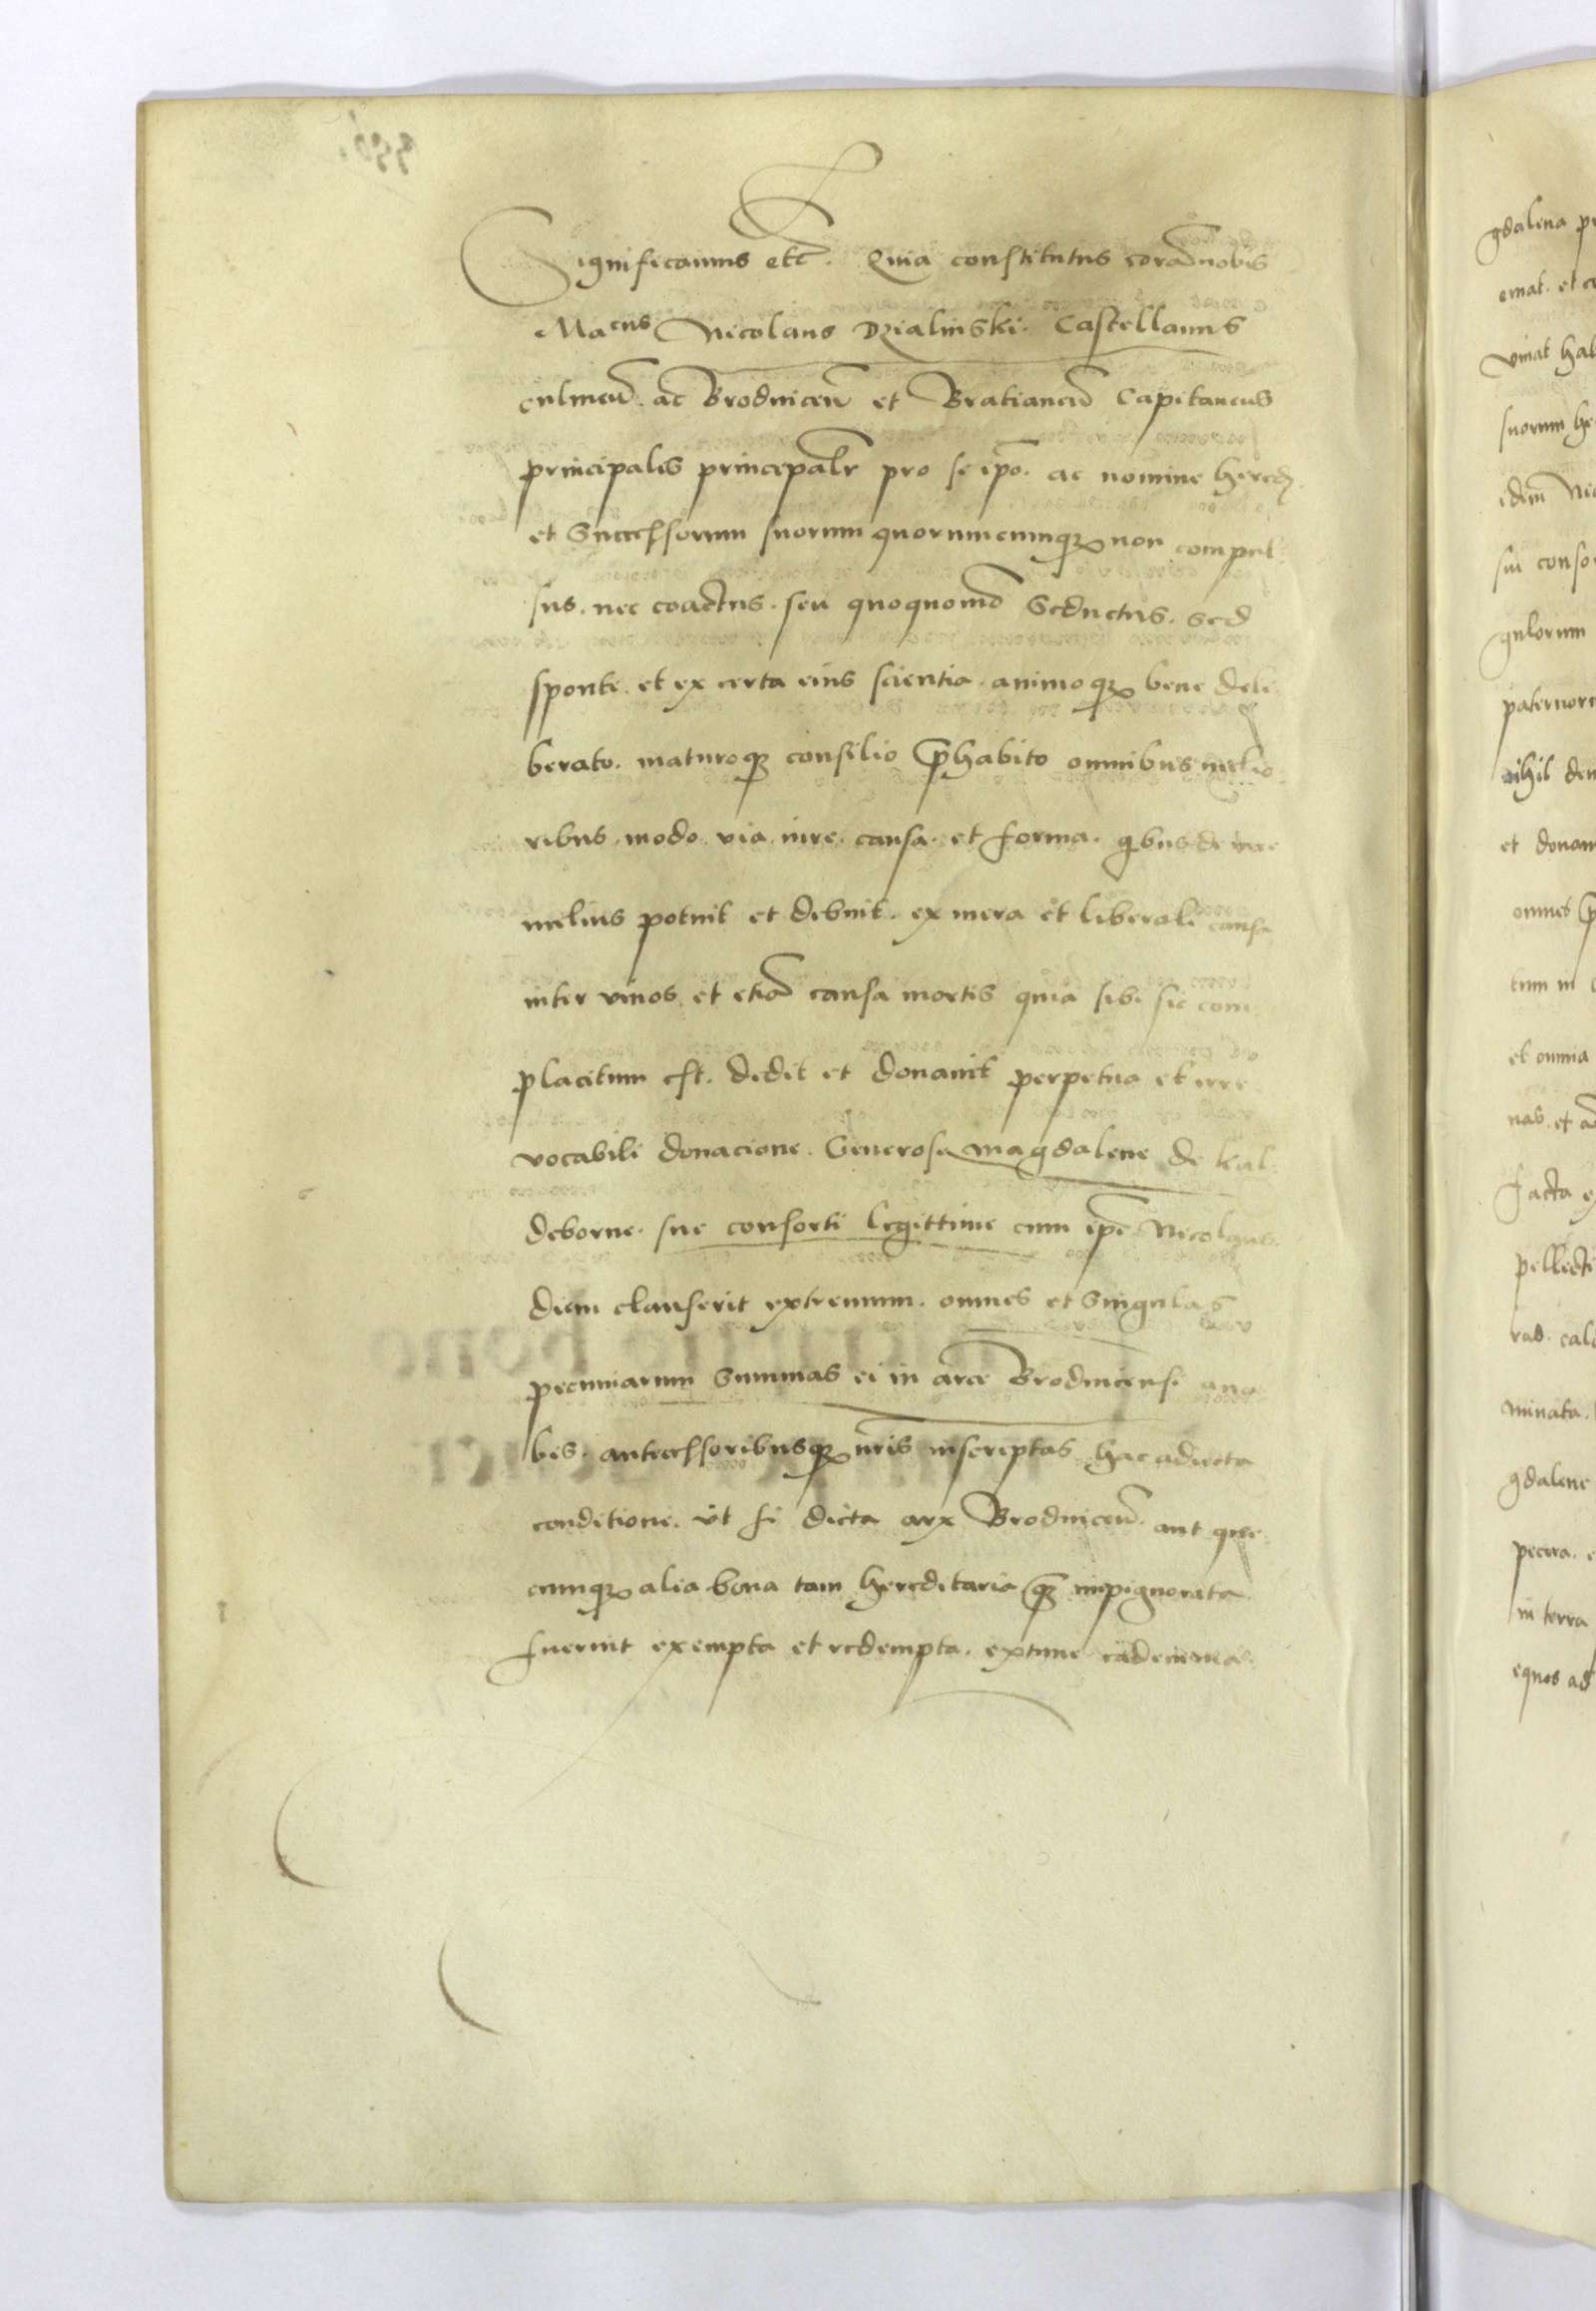 Significamus etc. Quia constitutus coram nobis
Macus Nicolaus Dzialinski. Castellanus
culmen̄. ac Brodnicen̄ et Bratianen̄ Capitaneus
principalis principalr̄ pro se ip̄o. ac nomine hered.
et Successorum suorum quorumcumqꝫ non compul
sus. nec coactus. seu quoquomō Seductus. sed
sponte. et ex certa eius scientia. animoqꝫ bene deli
berato. maturoqꝫ consilio p̄habito omnibus melio
ribus. modo. via. iure. causa. et forma. qbus de iure
melius potuit et debuit. ex mera et liberali causa
inter vivos. et etiā causa mortis quia sibi sic com
placitum est. dedit et donavit perpetua et irre
vocabili donacione. Generose magdalene de kal
deborne. sue consorti legittime cum ip̄e Nicolaus
diem clauserit extremum. omnes et Singulas
pecuniarum Summas ei in arce Brodnicensi a no
bis. antecessoribusqꝫ nr̄is inscriptas hac adiecta
conditione. ut si dicta arx Brodnicen̄. aut que
cumqꝫ alia bona tam hereditaria qꝫ impignorata
fuerint exempta et redempta. extunc eadem ma
gdalena
emat. et
vivat
suorum
idem
sui
gulorum
nihil
et
omnes
tum in
et omnia
nas. et
facta
rad.
minata.
gdalene
pecora.
in terra
equos ad